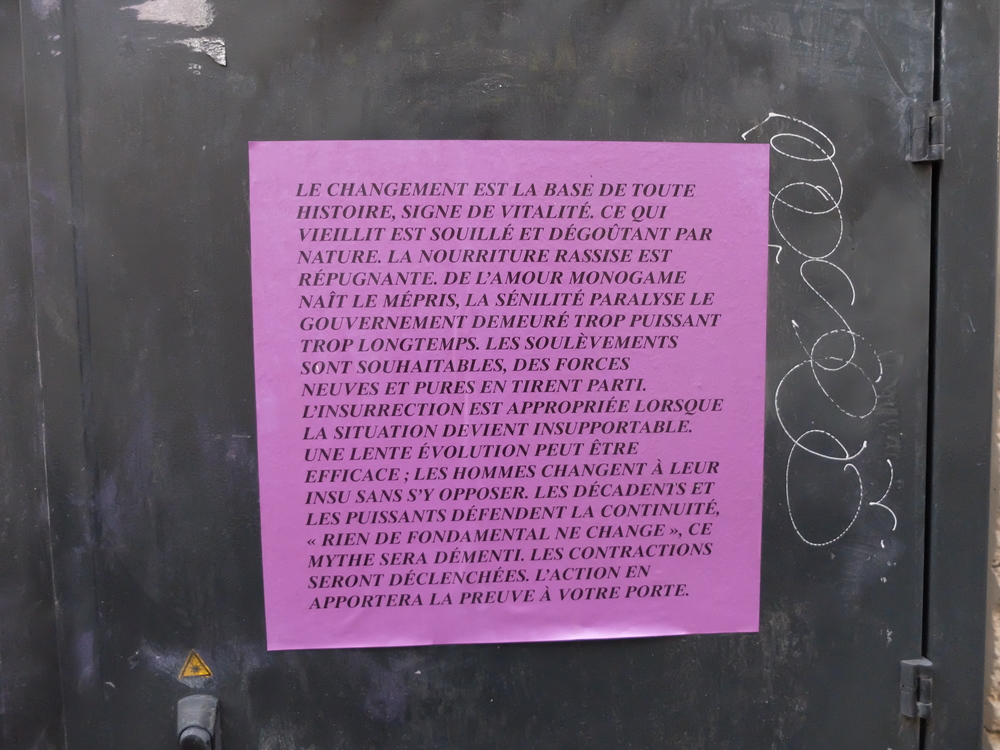 LE CHANGEMENT EST LA BASE DE TOUTE
HISTOIRE, SIGNE DE VITALITÉ. CE QUI
VIEILLIT EST SOUILLÉ ET DÉGOÛTANT PAR
NATURE. LA NOURRITURE RASSISE EST
RÉPUGNANTE. DE L'AMOUR MONOGAME
NAÎT LE MÉPRIS, LA SÉNILITÉ PARALYSE LE
GOUVERNEMENT DEMEURÉ TROP PUISSANT
TROP LONGTEMPS. LES SOULÈVEMENTS
SONT SOUHAITABLES, DES FORCES
NEUVES ET PURES EN TIRENT PARTI.
L'INSURRECTION EST APPROPRIÉE LORSQUE
LA SITUATION DEVIENT INSUPPORTABLE.
UNE LENTE ÉVOLUTION PEUT ÊTRE
EFFICACE ; LES HOMMES CHANGENT À LEUR
INSU SANS S'Y OPPOSER. LES DÉCADENTS ET
LES PUISSANTS DÉFENDENT LA CONTINUITÉ,
« RIEN DE FONDAMENTAL NE CHANGE », CE
MYTHE SERA DÉMENTI. LES CONTRACTIONS
SERONT DÉCLENCHÉES. L'ACTION EN
APPORTERA LA PREUVE À VOTRE PORTE.